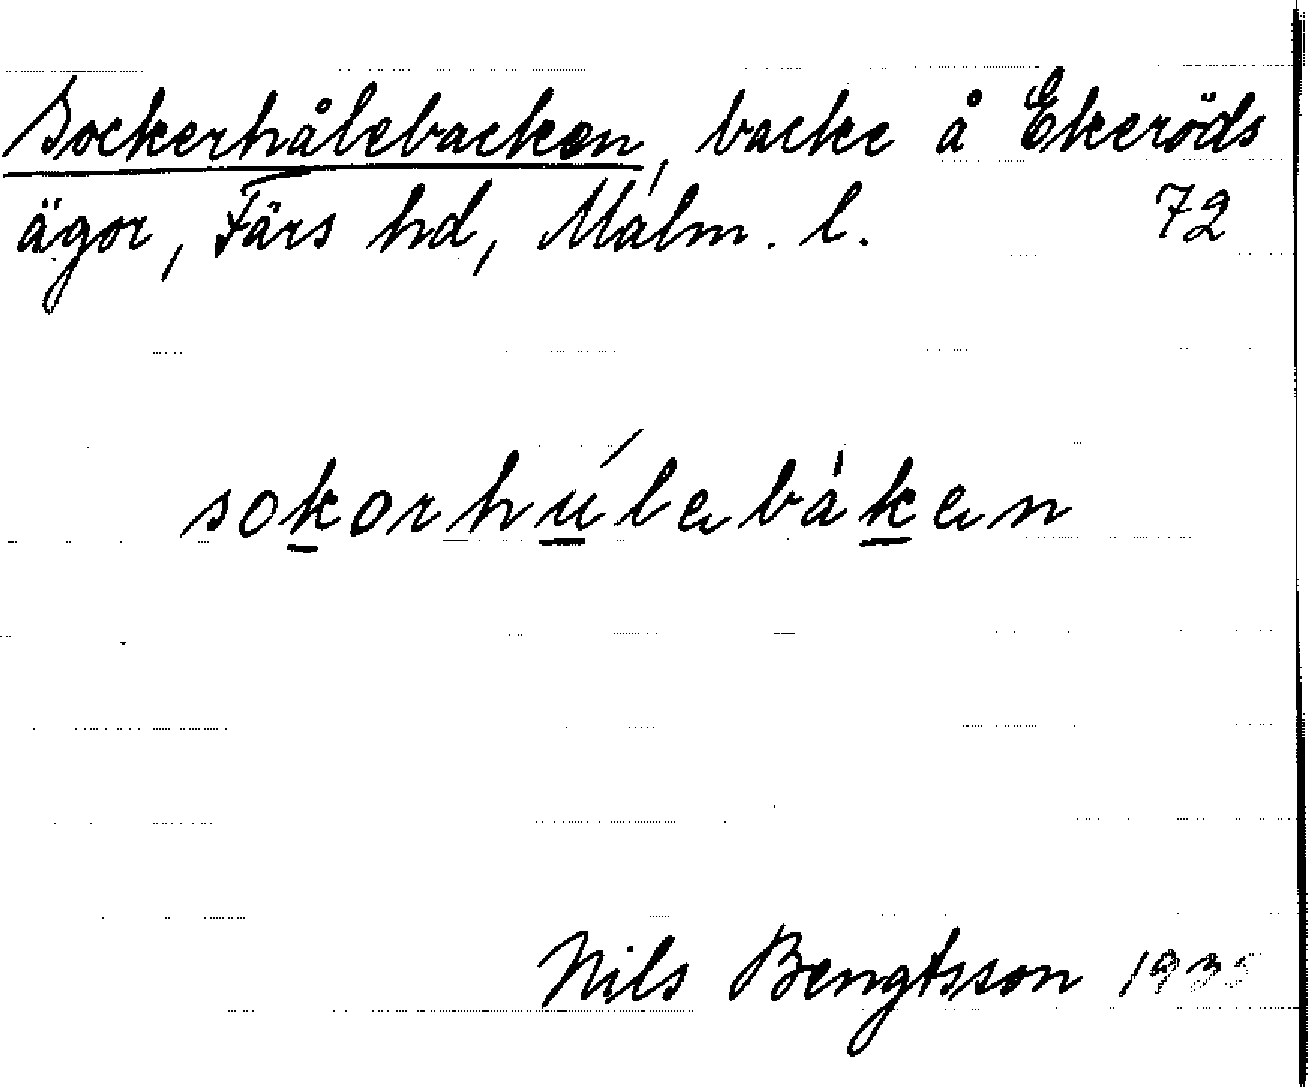 Sockerhålebacken, backe å Ekeröds
ägor, Färs hd, Malm. l. 72
sokorhúlebàken
Nils Bengtsson 1935